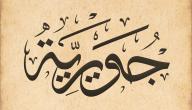 جُوَيْرِيَّةُ